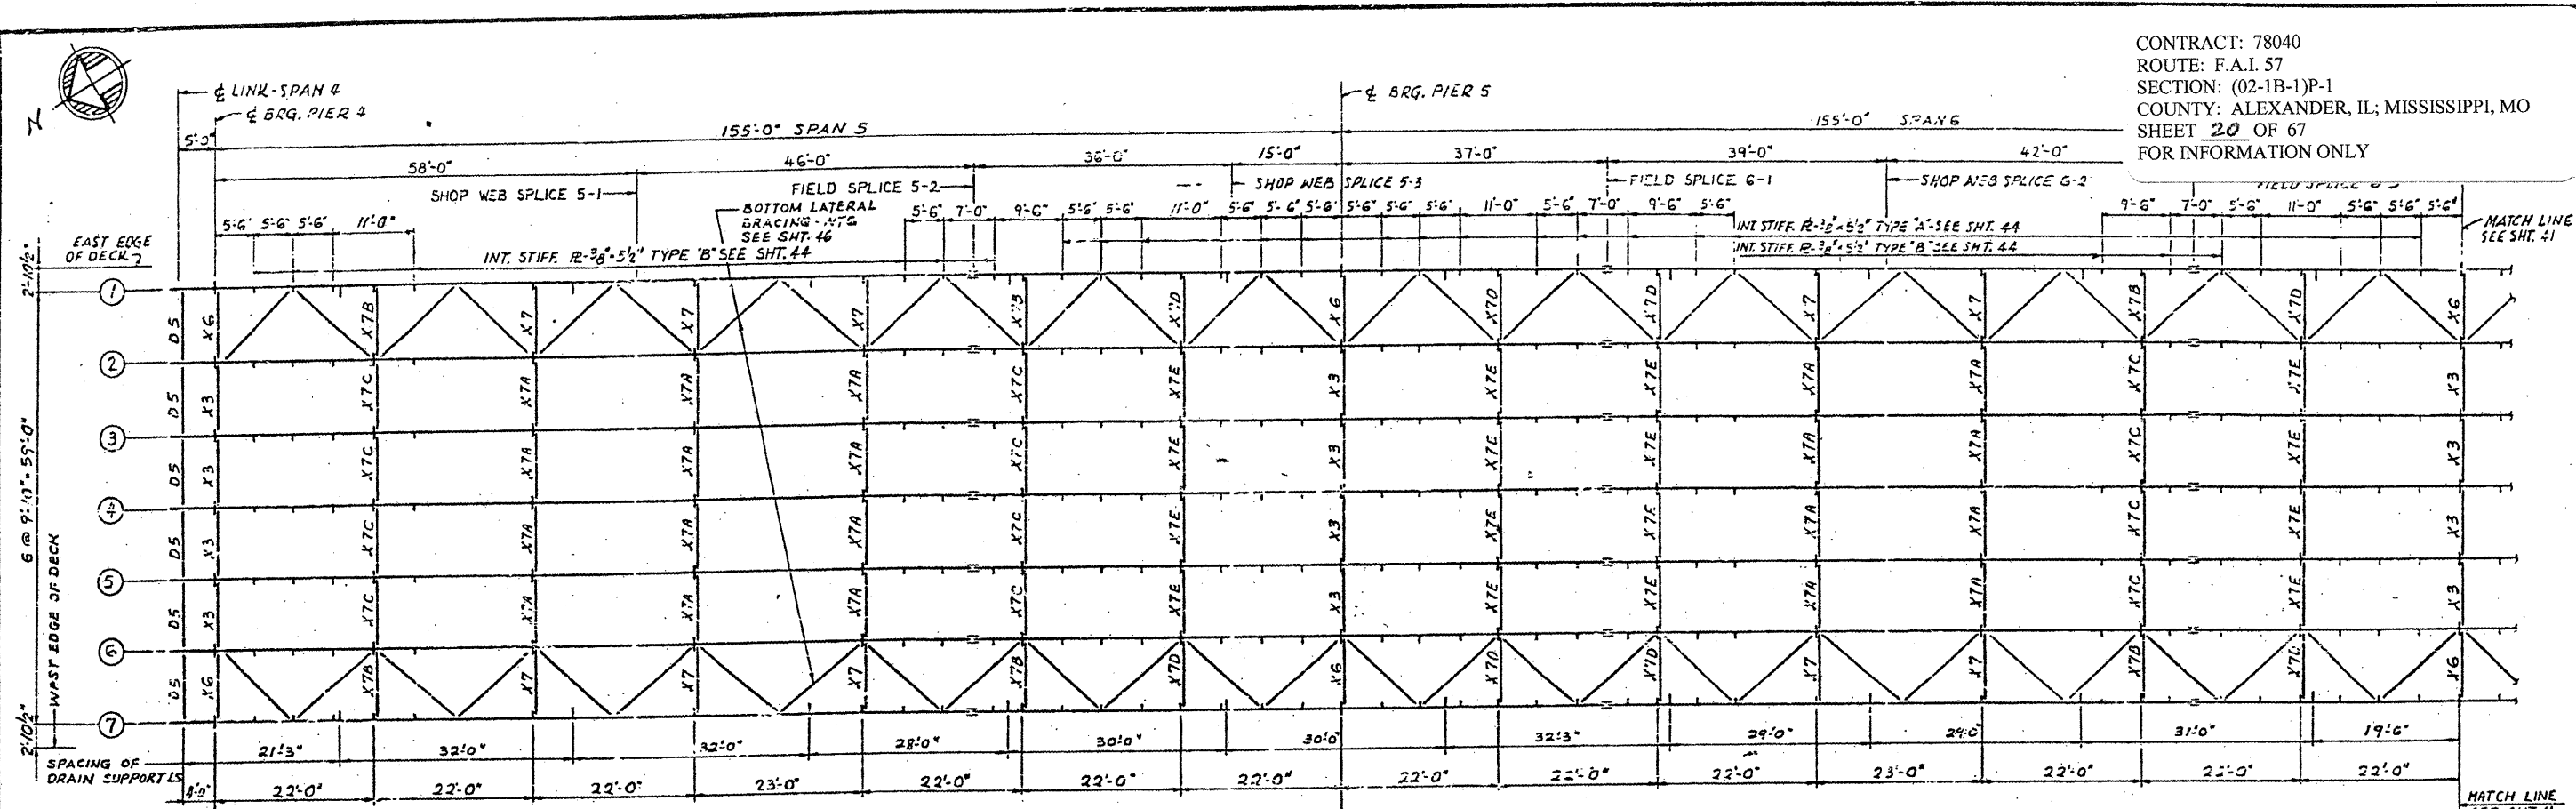 CONTRACT: 78040
ROUTE: F.A.I. 57
SECTION: (02-1B-1)P-1
COUNTY: ALEXANDER, IL; MISSISSIPPI, MO
SHEET 20 OF 67
FOR INFORMATION ONLY
N
℄ LINK-SPAN 4
℄ BRG. PIER 4
℄ BRG. PIER 5
5'-0"
155'-0" SPAN 5
155'-0" SPAN 6
58'-0"
46'-0"
36'-0"
15'-0"
37'-0"
39'-0"
42'-0"
SHOP WEB SPLICE 5-1
FIELD SPLICE 5-2
SHOP WEB SPLICE 5-3
FIELD SPLICE 6-1
SHOP WEB SPLICE 6-2
BOTTOM LATERAL
BRACING
SEE SHT. 46
5'-6" 5'-6" 5'-6" 11'-0"
5'-6" 7'-0" 9'-6" 5'-6" 5'-6" 11'-0" 5'-6" 5'-6" 5'-6" 5'-6" 5'-6" 5'-6" 11'-0" 5'-6" 7'-0" 9'-6" 5'-6"
9'-6" 7'-0" 5'-6" 11'-0" 5'-6" 5'-6" 5'-6"
MATCH LINE
SEE SHT. 41
EAST EDGE
OF DECK
INT. STIFF. ℞-3/8"×5½" TYPE "B" SEE SHT. 44
INT. STIFF. ℞-3/8"×5½" TYPE "A"-SEE SHT. 44
INT. STIFF. ℞-3/8"×5½" TYPE "B" SEE SHT. 44
2'-10½"
6 @ 9'-10" = 59'-0"
2'-10½"
WEST EDGE OF DECK
1
D5 X6 X7B X7 X7 X7 X7B X7D X6 X7D X7D X7 X7 X7B X7D X6
2
D5 X3 X7C X7A X7A X7A X7C X7E X3 X7E X7E X7A X7A X7C X7E X3
3
D5 X3 X7C X7A X7A X7A X7C X7E X3 X7E X7E X7A X7A X7C X7E X3
4
D5 X3 X7C X7A X7A X7A X7C X7E X3 X7E X7E X7A X7A X7C X7E X3
5
D5 X3 X7C X7A X7A X7A X7C X7E X3 X7E X7E X7A X7A X7C X7E X3
6
D5 X6 X7B X7 X7 X7 X7B X7D X6 X7D X7D X7 X7 X7B X7D X6
7
SPACING OF
DRAIN SUPPORTS
21'-3" 32'-0" 32'-0" 28'-0" 30'-0" 30'-0" 32'-3" 29'-0" 29'-0" 31'-0" 19'-6"
22'-0" 22'-0" 22'-0" 23'-0" 22'-0" 22'-0" 22'-0" 22'-0" 22'-0" 22'-0" 23'-0" 22'-0" 22'-0" 22'-0"
MATCH LINE